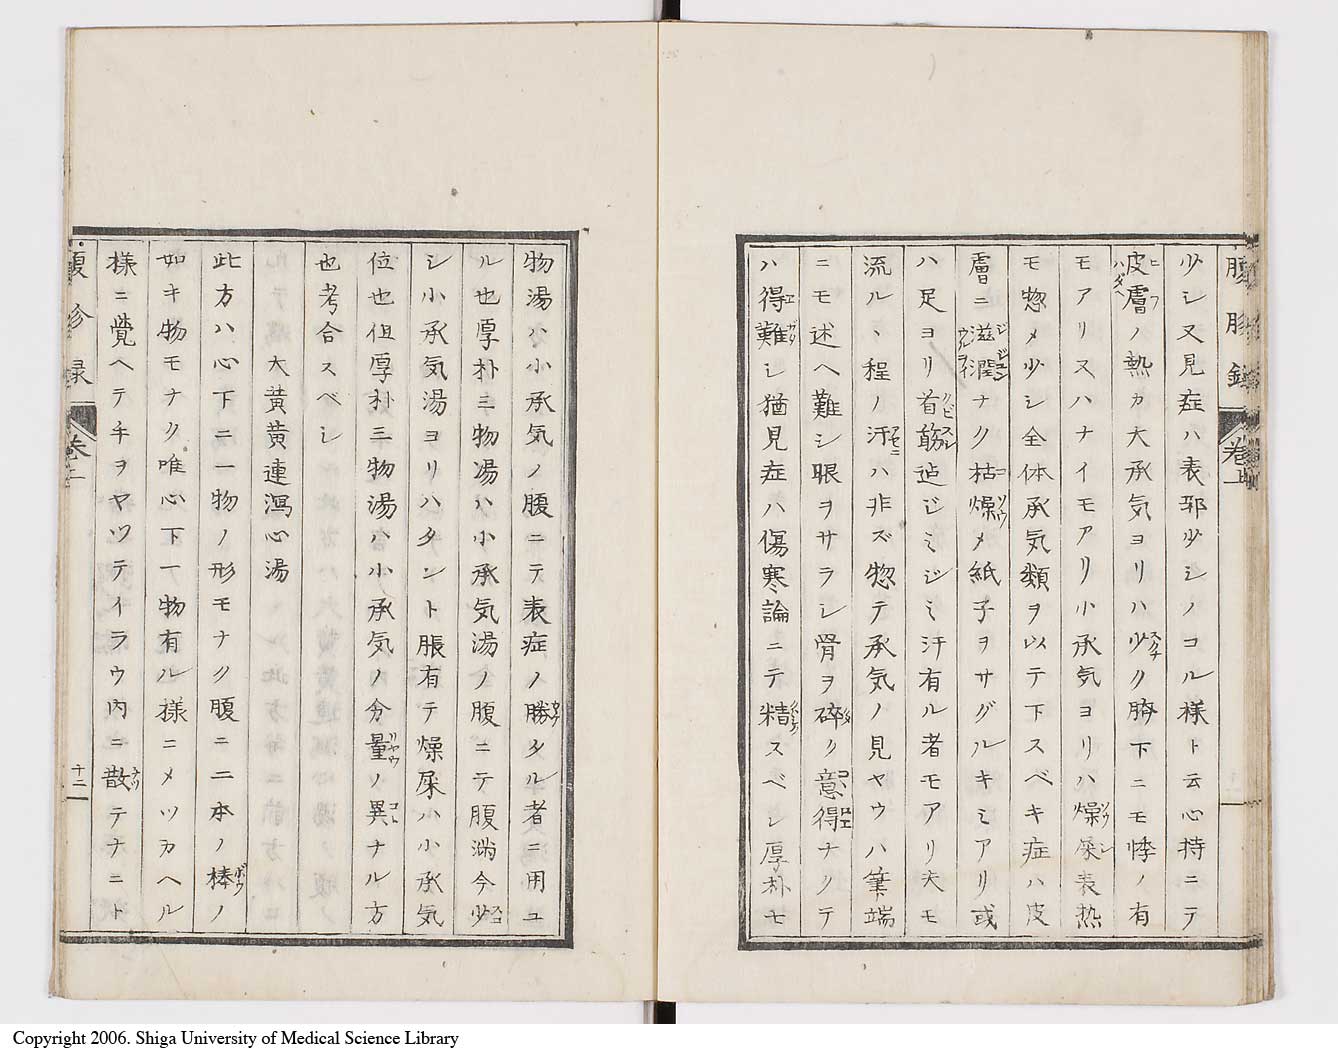 腹胗錄 卷上
少シ又見症ハ表邪少シノコル様ト云心持ニテ
皮膚ノ熱カ大承気ヨリハ少ク臍下ニモ悸ノ有
モアリスハナイモアリ小承気ヨリハ燥屎表熱
モ惣メ少シ全体承気類ヲ以テ下スベキ症ハ皮
膚ニ滋潤ナク枯燥メ紙子ヲサグルキミアリ或
ハ足ヨリ首筋迠ジミジミ汗有ル者モアリ夫モ
流ルヽ程ノ汗ハ非ズ惣テ承気ノ見ヤウハ筆端
ニモ述ヘ難シ眼ヲサラシ骨ヲ碎ク意得ナクテ
ハ得難シ猶見症ハ傷寒論ニテ精スベシ厚朴七
物湯ハ小承気ノ腹ニテ表症ノ勝タル者ニ用ユ
ル也厚朴三物湯ハ小承気湯ノ腹ニテ腹満今少
シ小承気湯ヨリハタント脹有テ燥屎ハ小承気
位也但厚朴三物湯ハ小承気ノ分量ノ異ナル方
也考合スベシ
大黄黄連瀉心湯
此方ハ心下ニ一物ノ形モナク腹ニ二本ノ棒ノ
如キ物モナク唯心下一物有ル様ニメツカヘル
様ニ覚ヘテ手ヲヤツテイラウ内ニ散テナニト
腹胗録 卷上 十二
Copyright 2006. Shiga University of Medical Science Library